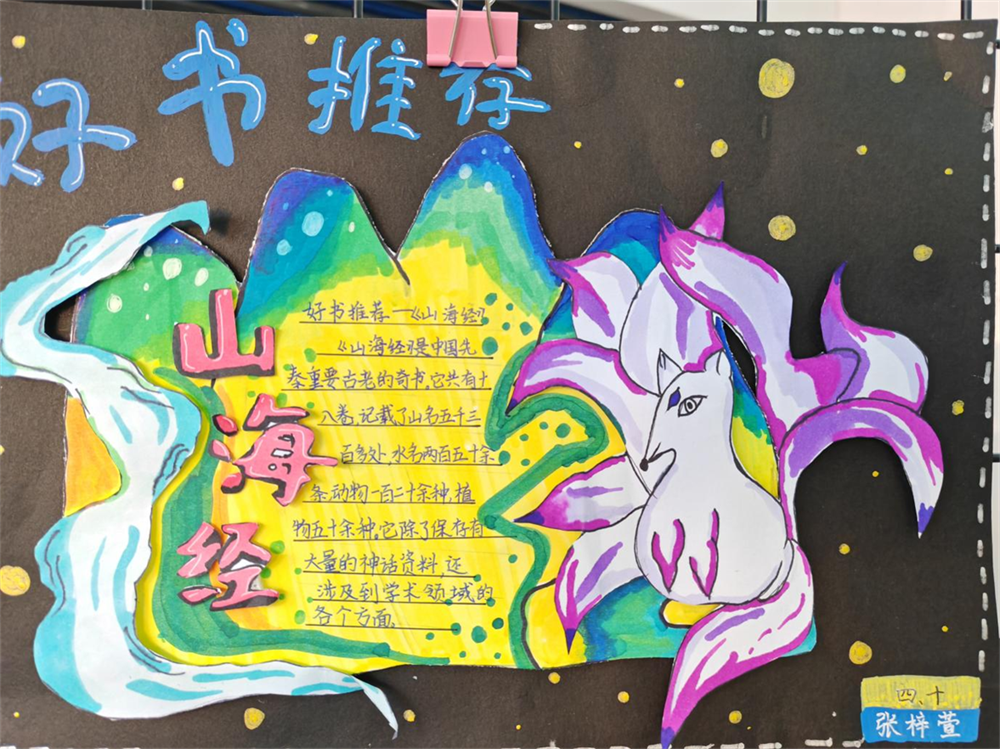 好书推荐
山海经
好书推荐一《山海经》
《山海经》是中国先
秦重要古老的奇书,它共有十
八卷,记载了山名五十三
百多处,水名两百五十余
条动物一百二十余种,植
物五十余种。它除了保存有
大量的神话资料,还
涉及到学术领域的
各个方面。
四、十
张梓萱